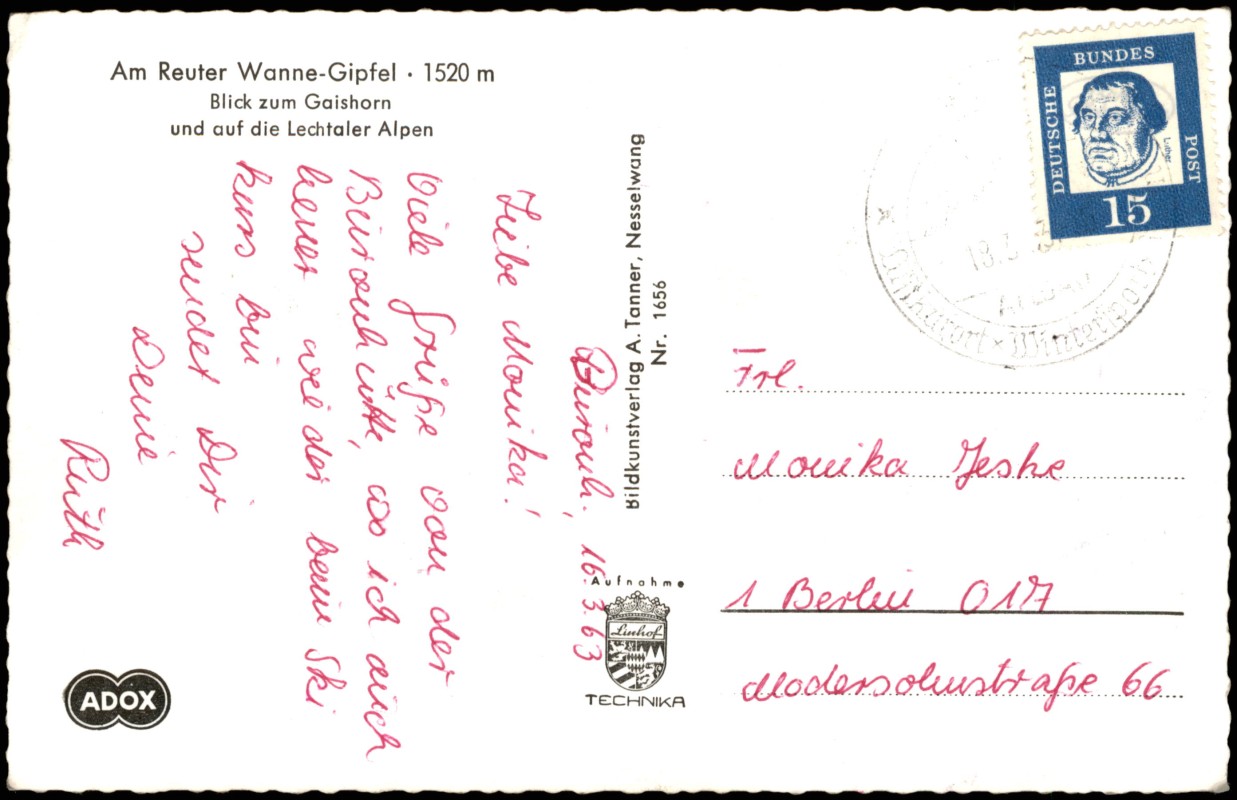 Am Reuter Wanne-Gipfel · 1520 m
Blick zum Gaishorn
und auf die Lechtaler Alpen
16.3.63
Liebe Monika!
Viele Grüße von der
wo ich auch
heuer wieder beim Ski
kurs bin
sendet Dir
Deine
Ruth
Bildkunstverlag A. Tanner, Nesselwang
Nr. 1656
Aufnahme
Linhof
TECHNIKA
ADOX
DEUTSCHE
BUNDES
POST
Luther
15
Luftkurort × Wintersport
Frl.
Monika Jeske
1 Berlin O17
Modersohnstraße 66